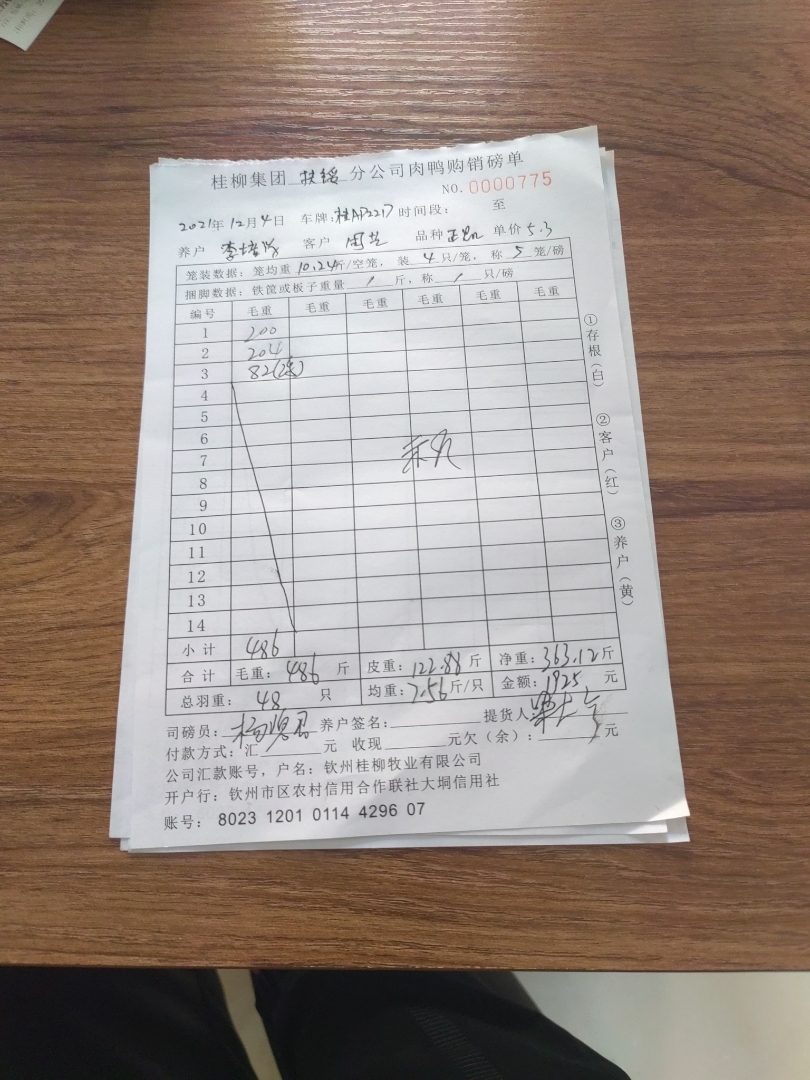 桂柳集团 扶绥 分公司肉鸭购销磅单
NO. 0000775
2021年12月4日 车牌:桂AP2217 时间段: 至
养户 李培 客户 周芝 品种 正 单价 5.3
笼装数据: 笼均重 10.24斤/空笼, 装 4 只/笼, 称 5 笼/磅
捆脚数据: 铁筐或板子重量 / 斤, 称 / 只/磅
编号 毛重 毛重 毛重 毛重 毛重 毛重
1 200
2 204
3 82(2笼)
4
5
6
7
8
9
10
11
12
13
14
小计 486
合计 毛重: 486 斤 皮重: 122.88 斤 净重: 363.12斤
总羽重: 48 只 均重: 7.56斤/只 金额: 1925 元
司磅员: 养户签名: 提货人
付款方式: 汇 元 收现 元欠(余): 元
公司汇款账号, 户名: 钦州桂柳牧业有限公司
开户行: 钦州市区农村信用合作联社大垌信用社
账号: 8023 1201 0114 4296 07
①存根(白)
②客户(红)
③养户(黄)